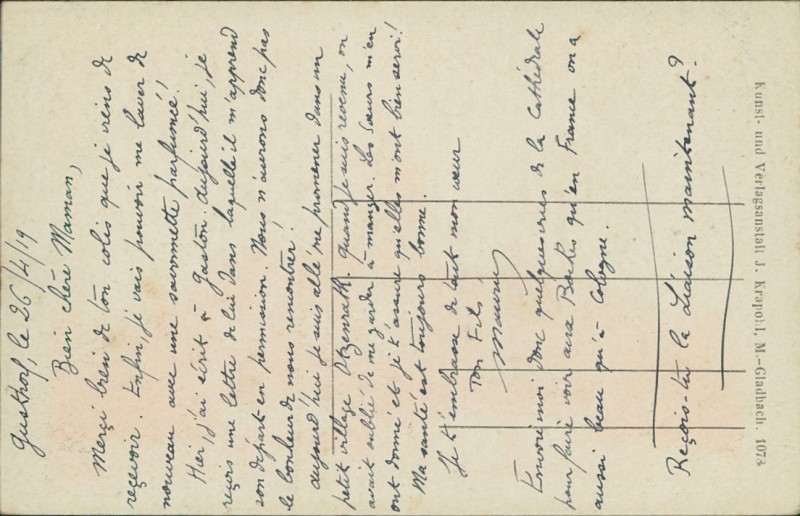 Gustorf, le 26/4/19
Bien chère Maman,
Merçi bien de ton colis que je viens de
reçevoir. Enfin, je vais pouvoir me laver de
nouveau avec une savonnette parfumée!
Hier, j'ai écrit à Gaston. Aujourd'hui, je
reçois une lettre de lui dans laquelle il m'apprend
son départ en permission. Nous n'aurons donc pas
le bonheur de nous rencontrer.
Aujourd'hui je suis allé me promener dans un
petit village Otzenrath. Quand je suis revenu, on
avait oublié de me garder à manger. Les Sœurs m'en
ont donné et je t'assure qu'elles m'ont bien servi!
Ma santé est toujours bonne.
Je t'embrasse de tout mon cœur
Ton Fils,
Maurice
Envoie moi donc quelques vues de la Cathédrale
pour faire voir aux Boches qu'en France on a
aussi beau qu'à Cologne.
Reçois-tu la Liaison maintenant?
Kunst- und Verlagsanstalt J. Krapohl, M.-Gladbach. 1073